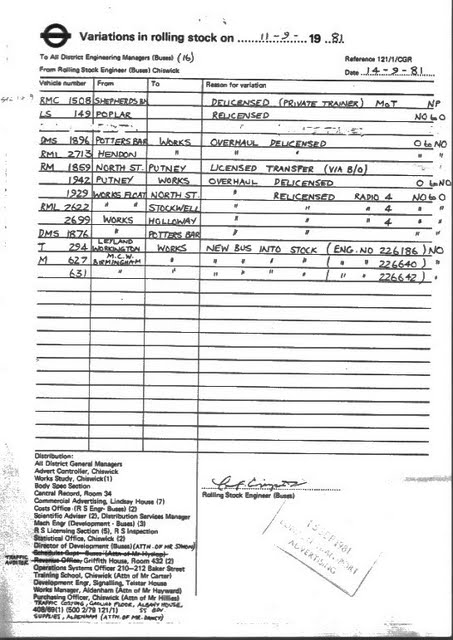 Variations in rolling stock on 11-9- 19 81
To All District Engineering Managers (Buses) (16)
Reference 121/1/CGR
From Rolling Stock Engineer (Buses) Chiswick
Date 14-9-81
Vehicle number From To Reason for variation
RMC 1508 SHEPHERDS B DELICENSED (PRIVATE TRAINER) MOT NP
LS 149 POPLAR RELICENSED NO to O
DMS 1896 POTTERS BAR WORKS OVERHAUL DELICENSED O to NO
RML 2713 HENDON " " " "
RM 1859 NORTH ST. PUTNEY LICENSED TRANSFER (VIA B/O)
1942 PUTNEY WORKS OVERHAUL DELICENSED O to NO
1929 WORKS FLOAT NORTH ST. " RELICENSED RADIO 4 NO to O
RML 2622 " STOCKWELL " " " 4 "
2699 WORKS HOLLOWAY " " " 4 "
DMS 1876 " POTTERS BAR " "
T 294 LEYLAND WORKINGTON WORKS NEW BUS INTO STOCK (ENG. NO 226186) NO
M 627 M.C.W. BIRMINGHAM " " " " " ( " " 226640) "
631 " " " " " " ( " " 226642) "
Distribution:
All District General Managers
Advert Controller, Chiswick
Works Study, Chiswick (1)
Body Spec Section
Central Record, Room 34
Commercial Advertising, Lindsay House (7)
Costs Office (R S Engr- Buses) (2)
Scientific Adviser (2), Distribution Services Manager
Mech Engr (Development - Buses) (3)
R S Licensing Section (5), R S Inspection
Statistical Office, Chiswick (2)
Director of Development (Buses) (ATTN. OF MR
Revenue Office, Griffith House, Room 632 (2)
Operations Systems Officer 210-212 Baker Street
Training School, Chiswick (Attn of Mr Carter)
Development Engr, Signalling, Telstar House
Works Manager, Aldenham (Attn of Mr Hayward)
Purchasing Officer, Chiswick (Attn of Mr Hillies)
TRAFFIC COSTING, FLOOR, ALBANY HOUSE,
408/69(1) (500 2/79 121/1) 55 BDV
SUPPLIES, ALDENHAM (ATTN. OF MR. DANCY)
TRAFFIC
Rolling Stock Engineer (Buses)
SEP 1981
ADVERTISING